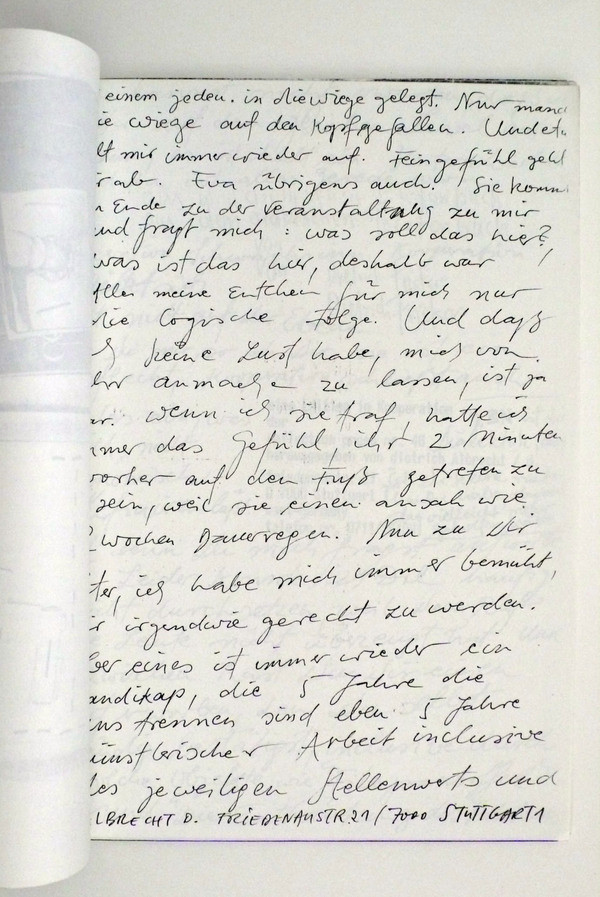 einem jeden. in die wiege gelegt. Nur
ie wiege auf den Kopf gefallen. Und
lt mir immer wieder auf. Feingefühl geht
ab. Eva übrigens auch. Sie komm
n Ende zu der Veranstaltung zu mir
und fragt mich: was soll das hier?
was ist das hier, deshalb war
Allen meine Entchen für mich nur
die logische Folge. Und daß
keine Lust habe, mich von
ihr anmachen zu lassen, ist ja
ar. wenn ich sie traf, hatte ich
mmer das Gefühl, ihr 2 Minuten
vorher auf den Fuß getreten zu
sein, weil sie einen ansah wie
2 wochen Dauerregen. Nun zu Dir
ter, ich habe mich immer bemüht,
ir irgendwie gerecht zu werden.
ber eines ist immer wieder ein
andikap, die 5 Jahre die
uns trennen sind eben 5 Jahre
ünstlerischer Arbeit inclusive
des jeweiligen Stellenwerts und
LBRECHT D. FRIEDENAUSTR.21/7000 STUTTGART1